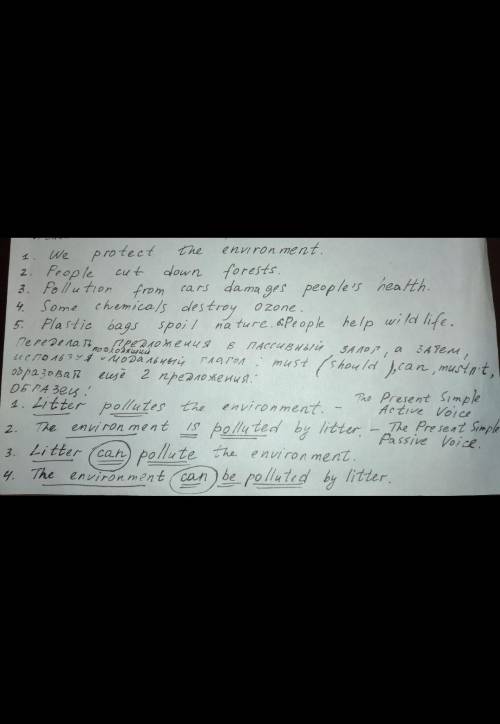 1. We protect the environment.
2. People cut down forests.
3. Pollution from cars damages people's health.
4. Some chemicals destroy ozone.
5. Plastic bags spoil nature. 6 People help wild life.
Переделать предложения в пассивный залог, а затем,
используя подходящий модальный глагол: must (should), can, mustn't,
образовать ещё 2 предложения.
ОБРАЗЕЦ:
1. Litter pollutes the environment. – The Present Simple Active Voice
2. The environment is polluted by litter. – The Present Simple Passive Voice.
3. Litter can pollute the environment.
4. The environment can be polluted by litter.